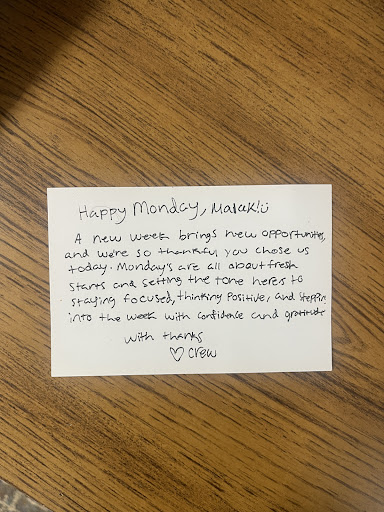 Happy Monday, Malak! ☺
A new week brings new opportunities,
and we're so thankful you chose us
today. Monday's are all about fresh
starts and setting the tone heres to
staying focused, thinking positive, and stepping
into the week with confidence and gratitude
with thanks
♡ crew